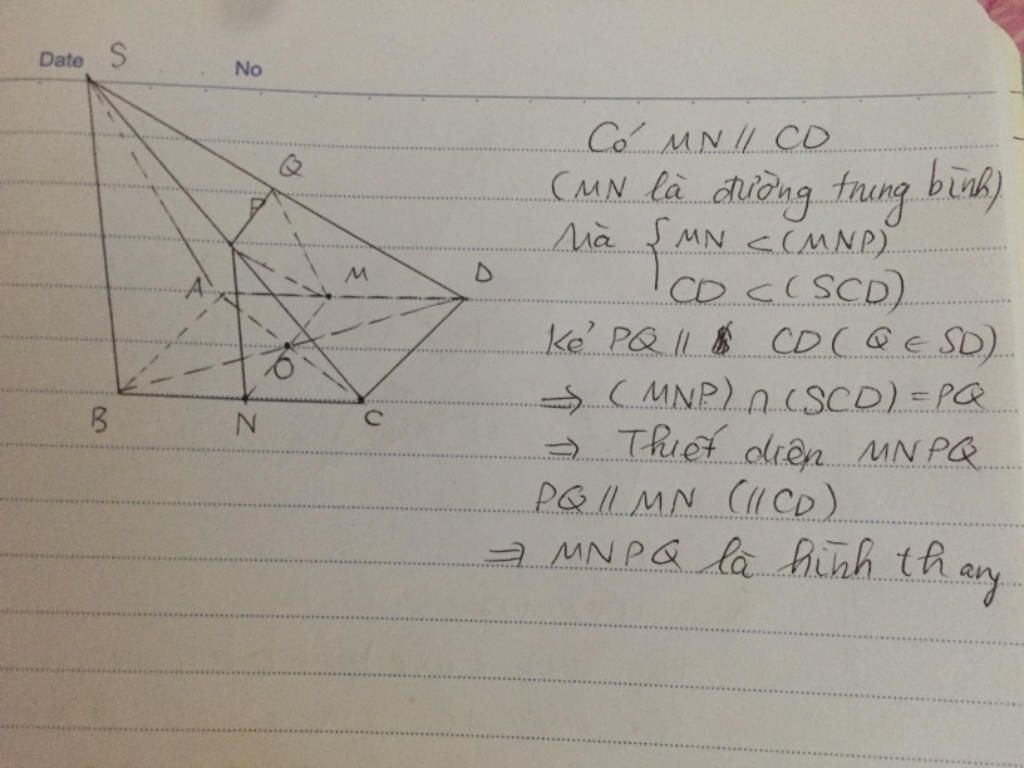 Date S
No
Q
P
A
M
D
O
B
N
C
Có MN // CD
(MN là đường trung bình)
Mà { MN ⊂ (MNP)
CD ⊂ (SCD)
Kẻ PQ // CD (Q ∈ SD)
⇒ (MNP) ∩ (SCD) = PQ
⇒ Thiết diện MNPQ
PQ // MN (// CD)
⇒ MNPQ là hình thang